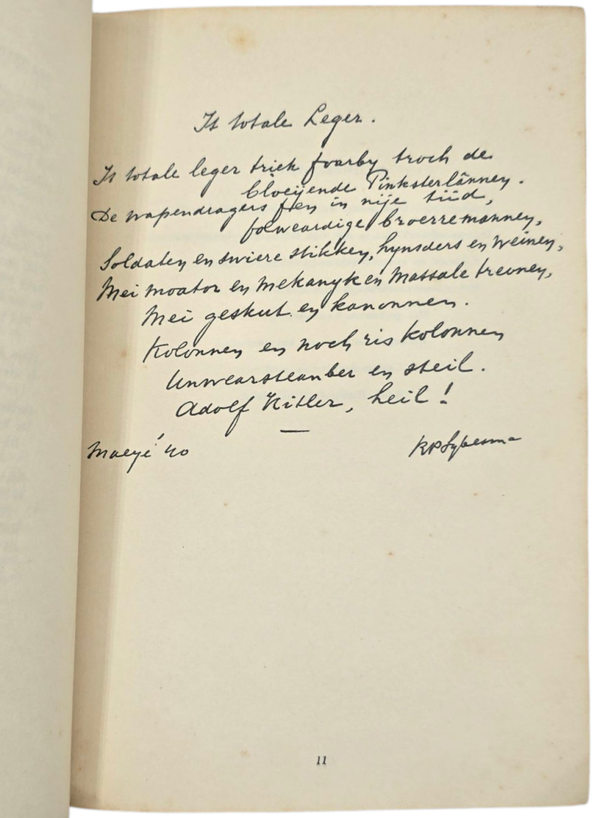 It totale Leger.
It totale leger triek foarby troch de
bloeijende Pinksterlânnen.
De wapendragers fen in nije tiid,
folweardige broerremannen,
Soldaten en swiere stikken, hynsders en weinen,
Mei moator en mekanyk en massale treonen,
Mei geskut en kanonnen.
Kolonnen en noch ris kolonnen
Unwearsteanber en steil.
Adolf Hitler, heil!
Maeye '40 R P Sybesma
11